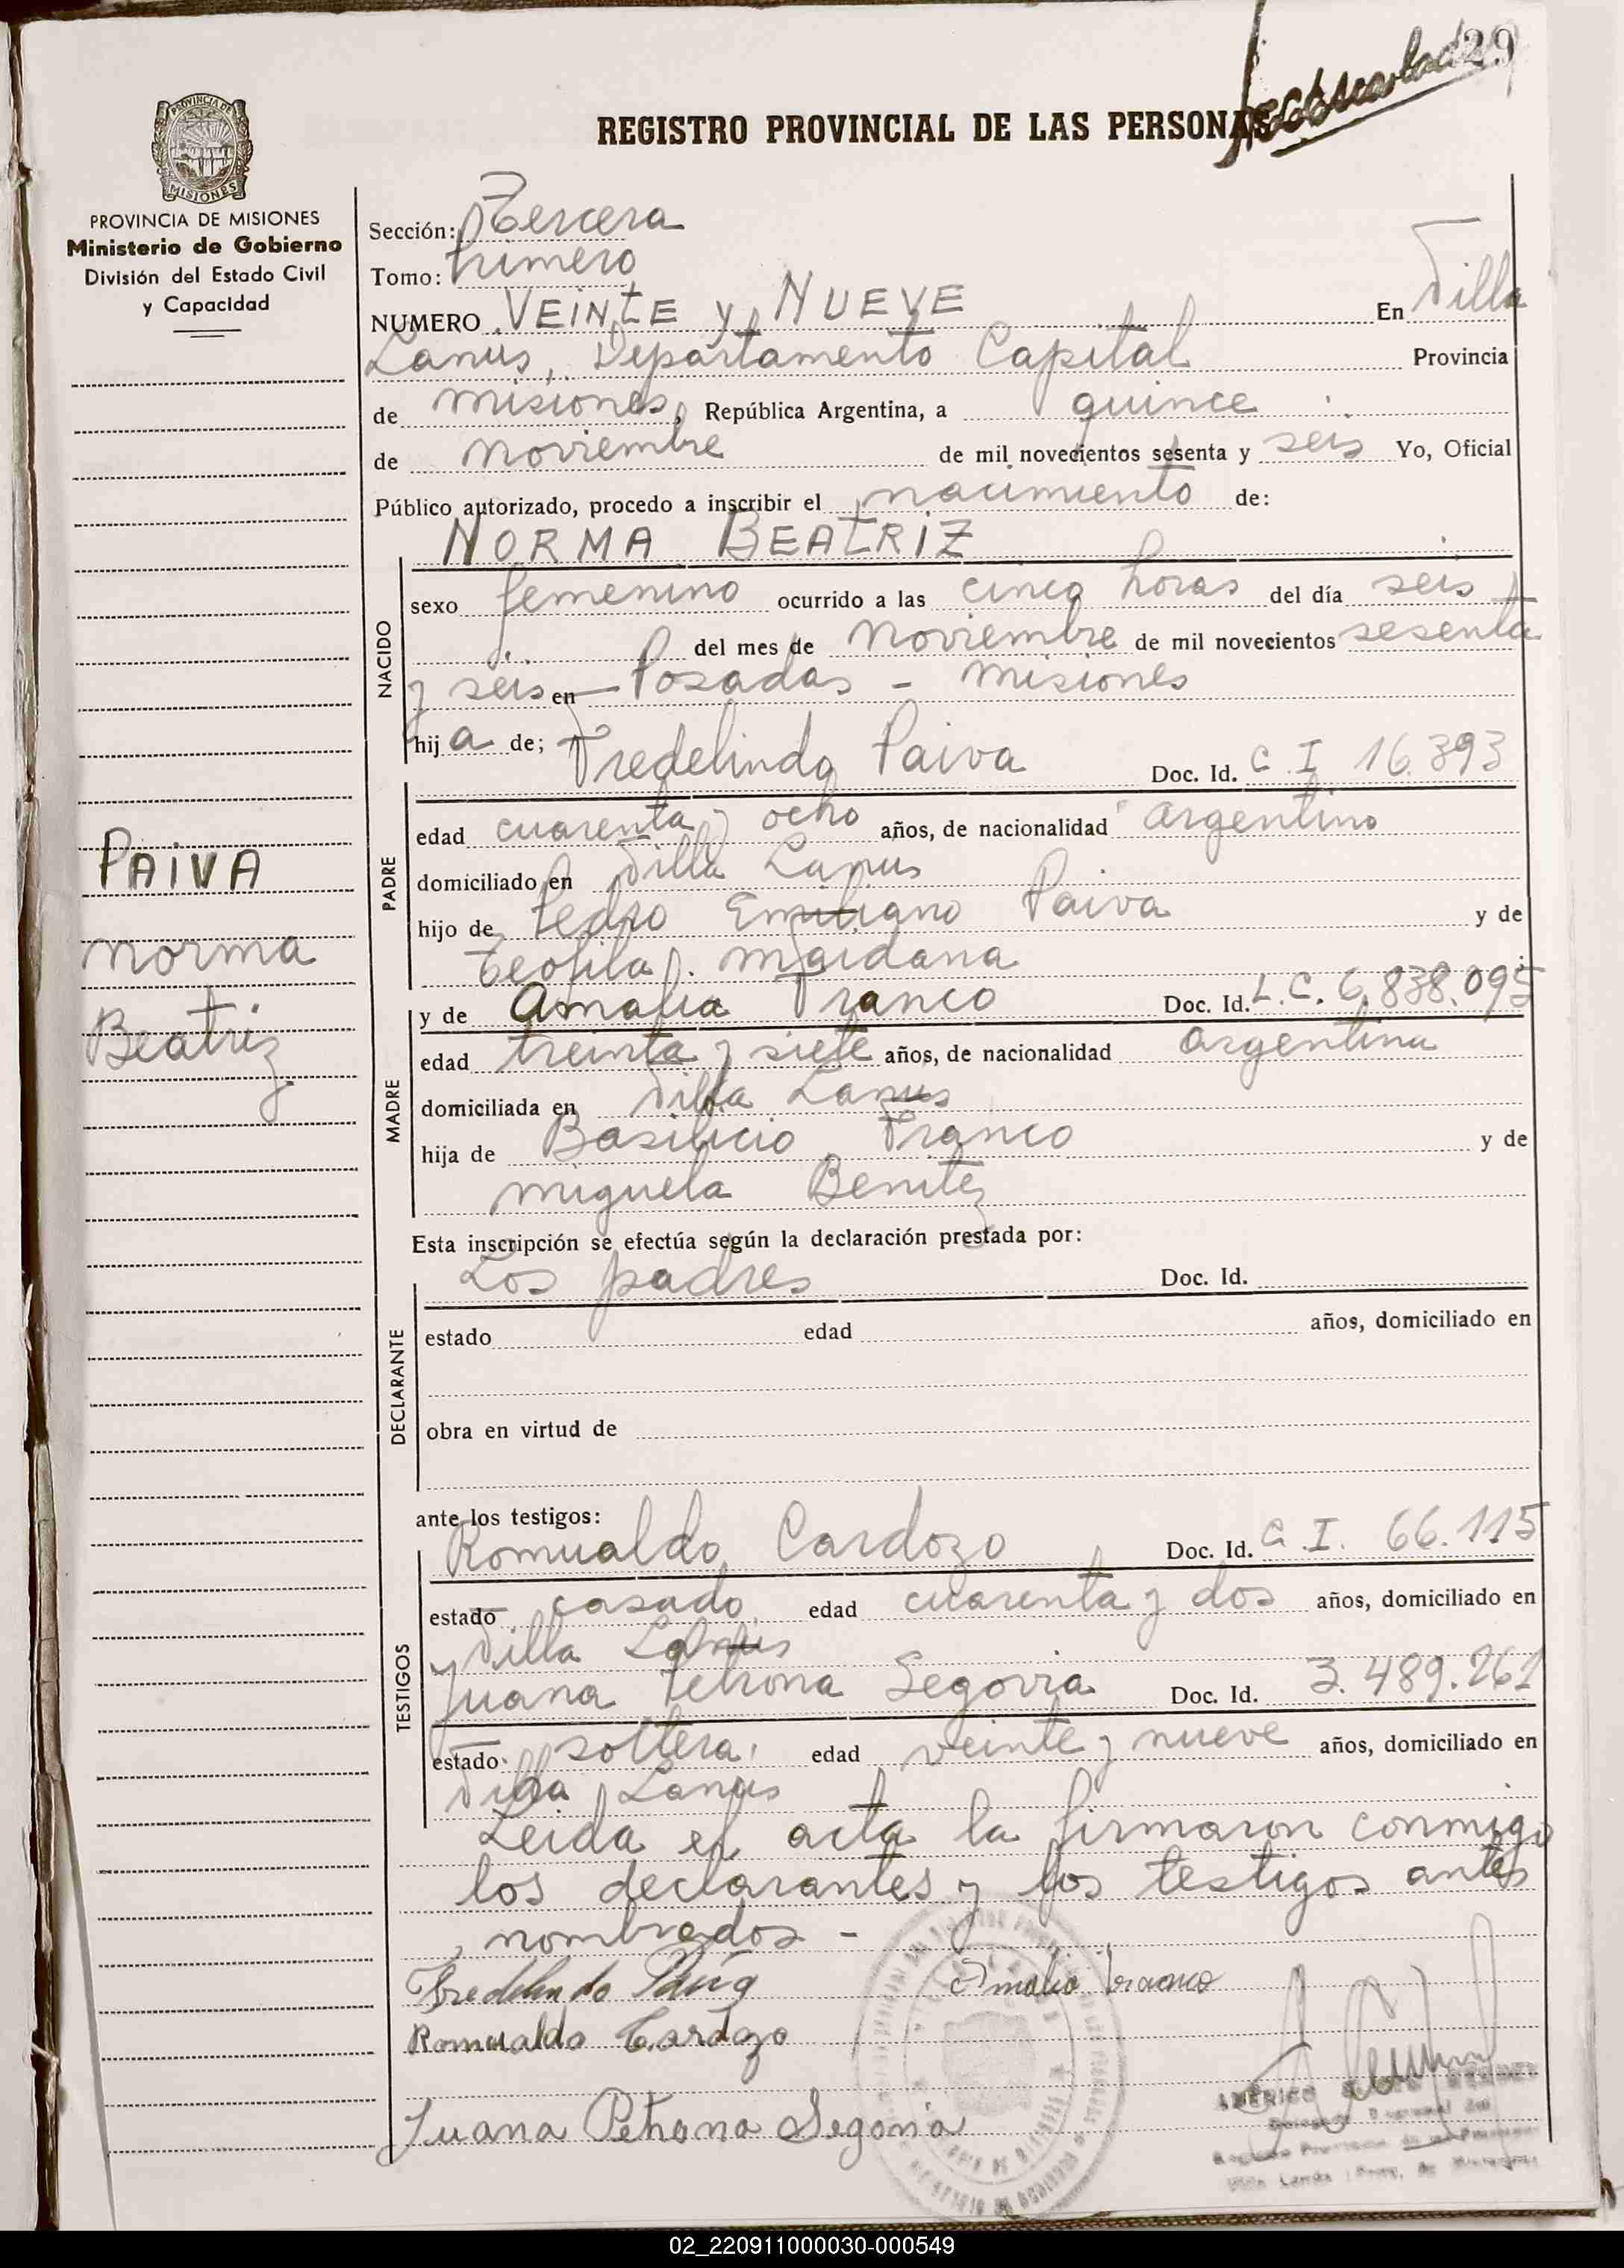 29
REGISTRO PROVINCIAL DE LAS PERSONAS
PROVINCIA DE
MISIONES
PROVINCIA DE MISIONES
Ministerio de Gobierno
División del Estado Civil
y Capacidad
Sección: Tercera
Tomo: Primero
NUMERO VEINTE y NUEVE En Villa
Lanus, Departamento Capital Provincia
de Misiones, República Argentina, a quince
de Noviembre de mil novecientos sesenta y seis Yo, Oficial
Público autorizado, procedo a inscribir el nacimiento de:
NORMA BEATRIZ
NACIDO
sexo femenino ocurrido a las cinco horas del día seis
del mes de Noviembre de mil novecientos sesenta
y seis en Posadas - Misiones
hija de; Fredelindo Paiva Doc. Id. C. I 16.393
PADRE
edad cuarenta y ocho años, de nacionalidad argentino
domiciliado en Villa Lanus
hijo de Pedro Emiliano Paiva y de
Teofila Maidana
y de Amalia Franco Doc. Id. L.C. 6.838.095
MADRE
edad treinta y siete años, de nacionalidad argentina
domiciliada en Villa Lanus
hija de Basilicio Franco y de
Miguela Benitez
PAIVA
Norma
Beatriz
Esta inscripción se efectúa según la declaración prestada por:
Los padres Doc. Id.
DECLARANTE
estado edad años, domiciliado en
obra en virtud de
ante los testigos:
Romualdo Cardozo Doc. Id. C.I. 66.115
TESTIGOS
estado casado, edad cuarenta y dos años, domiciliado en
Villa Lanus y
Juana Petrona Segovia Doc. Id. 3.489.261
estado soltera, edad veinte y nueve años, domiciliado en
Villa Lanus
Leida el acta la firmaron conmigo
los declarantes y los testigos antes
nombrados -
Fredelindo Paiva Amalia Franco
Romualdo Cardozo
Juana Petrona Segovia
AMERICO
Villa Lanús
02_220911000030-000549